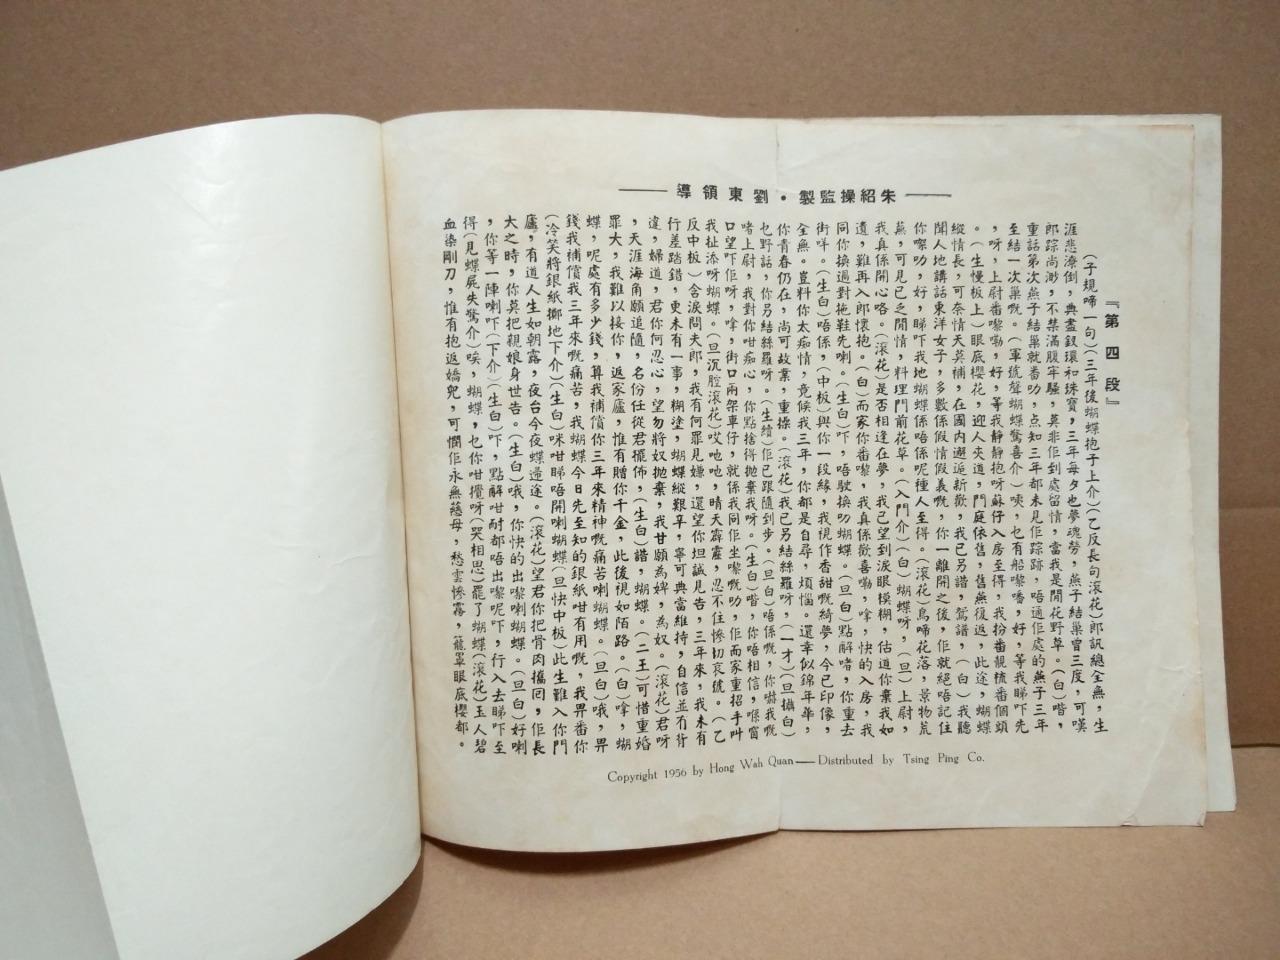 朱紹操監製・劉東領導
『第四段』
(子規啼一句)(三年後蝴蝶抱子上介)(乙反長句滾花)郎訊總全無，生
涯悲潦倒，典盡釵環和珠寶，三年每夕也夢魂勞，燕子結巢曾三度，可嘆
郎踪尚渺，不禁滿腹牢騷，莫非佢到處留情，當我是閒花野草。(白)喈，
重話第次燕子結巢就番叻，点知三年都未見佢踪跡，唔通佢處的燕子三年
至結一次巢嘅。(軍號聲蝴蝶驚喜介)咦，乜有船嚟嚹，好，等我睇吓先
，呀，上尉番嚟嘞，好，等我靜靜抱呀蘇仔入房至得，我扮番靚梳番個頭
。(生慢板上)眼底櫻花，迎人夾道，門庭依舊，舊燕復返，此途，蝴蝶
縱情長，可奈情天莫補，在國內邂逅新歡，我已另譜，鴛譜，(白)我聽
聞人地講話東洋女子，多數係假情假義嘅，你一離開之後，佢就絕唔記住
你㗎叻，好，睇吓我地蝴蝶係唔係呢種人至得。(滾花)鳥啼花落，景物荒
蕪，可見已乏閒情，料理門前花草。(入門介)(白)蝴蝶呀，(旦)上尉，
我真係開心咯。(滾花)是否相逢在夢，我已望到淚眼模糊，估道你棄我如
遺，難再入郎懷抱。(白)而家你番嚟，我真係歡喜嘞，嗱，快的入房，我
同你換過對拖鞋先喇。(生白)吓，唔駛換叻蝴蝶。(旦白)點解啫，你重去
街咩。(生白)唔係，(中板)與你一段緣，我視作香甜嘅綺夢，今已印像，
全無。豈料你太痴情，竟候我三年，你都是自尋，煩惱。還幸似錦年華，
你青春仍在，尚可故業，重操。(滾花)我已另結絲羅呀，(一才)(旦攝白)
乜野話，你另結絲羅呀。(生續)佢已跟隨到步。(旦白)唔係嘅，你嚇我嘅
啫上尉，我對你咁痴心，你點捨得拋棄我呀。(生白)喈，你唔相信，喺窗
口望吓佢呀，嗱，街口兩架車仔，就係我同佢坐嚟嘅叻，佢而家重招手叫
我扯添呀蝴蝶。(旦沉腔滾花)哎吔吔，晴天霹靂，忍不住慘切哀號。(乙
反中板)含淚問夫郎，我有何罪見嫌，還望你坦誠見告，三年來，我未有
行差踏錯，更未有一事，糊塗，蝴蝶縱艱辛，寧可典當維持，自信並冇背
違，婦道，君你何忍心，望勿將奴拋棄，我甘願為婢，為奴。(滾花)君呀
，天涯海角願追隨，名份任從君擺佈，(生白)譜，蝴蝶。(二王)可惜重婚
罪大，我難以接你，返家廬，惟有贈你千金，此後視如陌路。(白)嗱，蝴
蝶，呢處有多少錢，算我補償你三年來精神嘅痛苦喇蝴蝶。(旦白)哦，畀
錢我補償我三年來嘅痛苦，我蝴蝶今日先至知的銀紙咁有用嘅，我畀番你
(冷笑將銀紙擲地下介)(生白)咪咁睇唔開喇蝴蝶(旦快中板)此生難入你門
廬，有道人生如朝露，夜台今夜蝶遄途。(滾花)望君你把骨肉攜囘，佢長
大之時，你莫把親娘身世告。(生白)哦，你快的出嚟喇蝴蝶。(旦白)好喇
，你等一陣喇吓(下介)(生白)吓，點解咁耐都唔出嚟呢吓，行入去睇吓至
得(見蝶屍失驚介)唉，蝴蝶，乜你咁攪呀(哭相思)罷了蝴蝶(滾花)玉人碧
血染剛刀，惟有抱返嬌兒，可憫佢永無慈母，愁雲慘霧，籠罩眼底櫻都。
Copyright 1956 by Hong Wah Quan — Distributed by Tsing Ping Co.